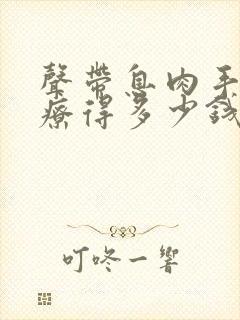 聲帶息肉手
療得多少錢
叮咚一響